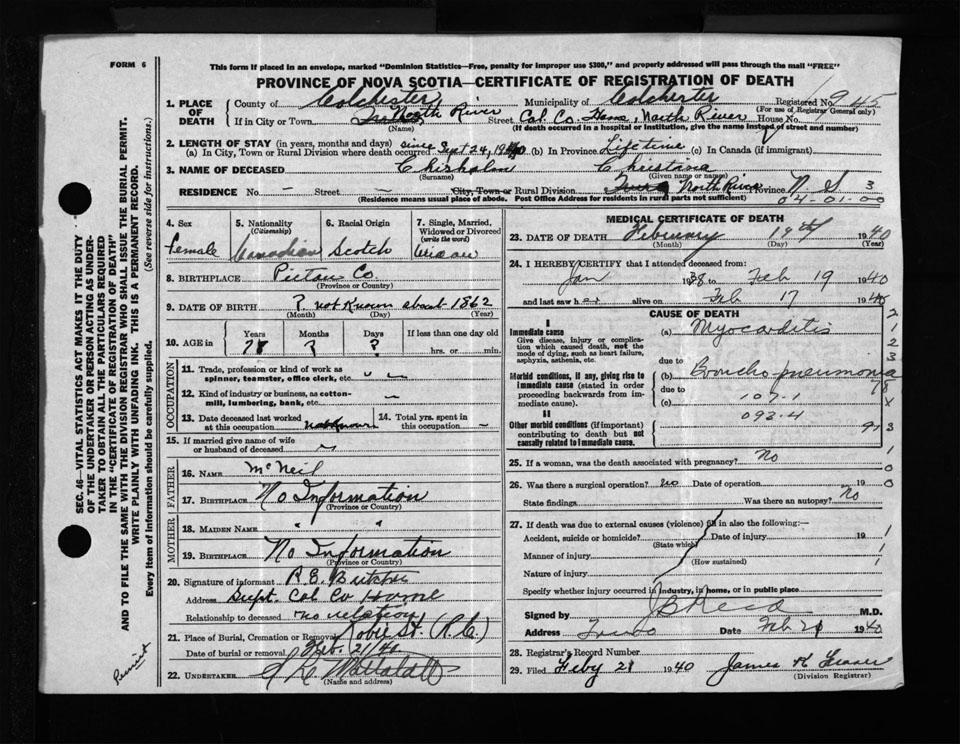 FORM 6
This form if placed in an envelope, marked "Dominion Statistics—Free, penalty for improper use $300," and properly addressed will pass through the mail "FREE"
PROVINCE OF NOVA SCOTIA—CERTIFICATE OF REGISTRATION OF DEATH
1. PLACE OF DEATH County of Colchester Municipality of Colchester Registered No. 945
(For use of Registrar General only)
If in City or Town North River Street Col. Co. Home, North River House No.
(Name) (If death occurred in a hospital or institution, give the name instead of street and number)
2. LENGTH OF STAY (in years, months and days)
(a) In City, Town or Rural Division where death occurred since Sept 24, 1940 (b) In Province Lifetime (c) In Canada (if immigrant)
3. NAME OF DECEASED Chisholm Christina
(Surname) (Given name or names)
RESIDENCE No. - Street - City, Town or Rural Division North River Province N. S 3
(Residence means usual place of abode. Post Office Address for residents in rural parts not sufficient) 04-01-00
4. Sex
female
5. Nationality
(Citizenship)
Canadian
6. Racial Origin
Scotch
7. Single, Married, Widowed or Divorced
(write the word)
Widow
8. BIRTHPLACE Pictou Co.
(Province or Country)
9. DATE OF BIRTH ? not Known about 1862
(Month) (Day) (Year)
10. AGE in Years Months Days If less than one day old
78 ? ? hrs. or min.
OCCUPATION
11. Trade, profession or kind of work as spinner, teamster, office clerk, etc.
12. Kind of industry or business, as cotton-mill, lumbering, bank, etc.
13. Date deceased last worked at this occupation not Known
14. Total yrs. spent in this occupation -
15. If married give name of wife or husband of deceased
FATHER
16. NAME McNeil
17. BIRTHPLACE No Information
(Province or Country)
MOTHER
18. MAIDEN NAME " "
19. BIRTHPLACE No Information
(Province or Country)
20. Signature of informant R.E.
Address Supt. Col Co Home
Relationship to deceased no relation
21. Place of Burial, Cremation or Removal Robie St. (R.C.)
Date of burial or removal Feb. 21/40
22. UNDERTAKER
(Name and address)
MEDICAL CERTIFICATE OF DEATH
23. DATE OF DEATH February 19th 1940
(Month) (Day) (Year)
24. I HEREBY CERTIFY that I attended deceased from:
Jan 1938 to Feb 19 1940
and last saw her alive on Feb 17 1940
CAUSE OF DEATH
I
Immediate cause (a) Myocarditis
Give disease, injury or complication which caused death, not the mode of dying, such as heart failure, asphyxia, asthenia, etc.
due to
Morbid conditions, if any, giving rise to immediate cause (stated in order proceeding backwards from immediate cause).
(b) Bronchopneumonia
due to
(c) 107.1
093.4
II
Other morbid conditions (if important) contributing to death but not causally related to immediate cause.
25. If a woman, was the death associated with pregnancy? No
26. Was there a surgical operation? No Date of operation 19
State findings Was there an autopsy? No
27. If death was due to external causes (violence) fill in also the following:—
Accident, suicide or homicide? Date of injury 19
(State which)
Manner of injury
(How sustained)
Nature of injury
Specify whether injury occurred in industry, in home, or in public place
Signed by J B Reid M.D.
Address Truro Date Feb 20 1940
28. Registrar's Record Number
29. Filed Feby 21 1940 James K Fraser
(Division Registrar)
SEC. 46—VITAL STATISTICS ACT MAKES IT THE DUTY
OF THE UNDERTAKER OR PERSON ACTING AS UNDERTAKER TO OBTAIN ALL THE PARTICULARS REQUIRED
IN THE "CERTIFICATE OF REGISTRATION OF DEATH"
AND TO FILE THE SAME WITH THE DIVISION REGISTRAR WHO SHALL ISSUE THE BURIAL PERMIT.
WRITE PLAINLY WITH UNFADING INK. THIS IS A PERMANENT RECORD.
Every item of information should be carefully supplied. (See reverse side for instructions.)
Permit